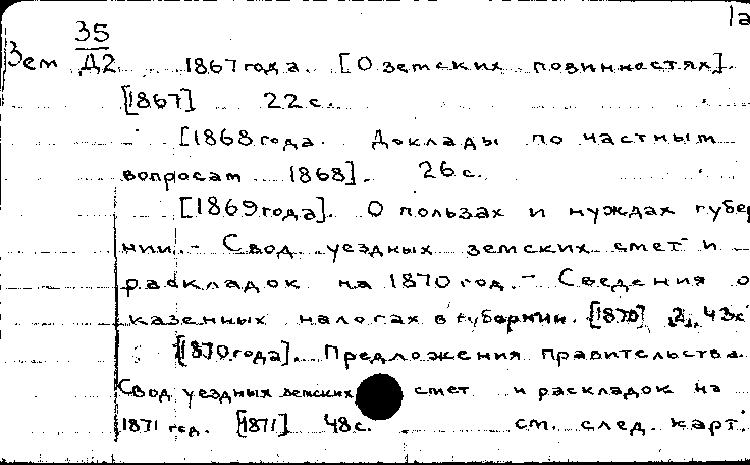 1а
Зем 35/Д2 1867 года. [О земских повинностях].
[1867] 22 с.
[1868 года. Доклады по частным
вопросам 1868]. 26 с.
[1869 года]. О пользах и нуждах губер
нии. - Свод уездных земских смет и
раскладок на 1870 год. - Сведения о
казенных налогах в губернии. [1870] 2, 43 с
[1870 года]. Предложения правительства.
Свод уездных земских смет и раскладок на
1871 год. [1871] 48 с. см. след. карт.